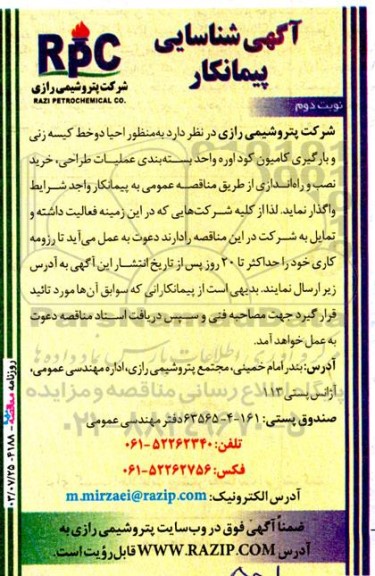 آگهی شناسایی
پیمانکار
RPC
شرکت پتروشیمی رازی
RAZI PETROCHEMICAL CO.
نوبت دوم
شرکت پتروشیمی رازی در نظر دارد به‌منظور احیا دو خط کیسه زنی
و بارگیری کامیون کود اوره واحد بسته‌بندی عملیات طراحی، خرید
نصب و راه‌اندازی از طریق مناقصه عمومی به پیمانکار واجد شرایط
واگذار نماید. لذا از کلیه شرکت‌هایی که در این زمینه فعالیت داشته و
تمایل به شرکت در این مناقصه را دارند دعوت به عمل می‌آید تا رزومه
کاری خود را حداکثر تا ۲۰ روز پس از تاریخ انتشار این آگهی به آدرس
زیر ارسال نمایند. بدیهی است از پیمانکارانی که سوابق آن‌ها مورد تائید
قرار گیرد جهت مصاحبه فنی و سپس دریافت اسناد مناقصه دعوت
به عمل خواهد آمد.
آدرس: بندر امام خمینی، مجتمع پتروشیمی رازی، اداره مهندسی عمومی،
آژانس پستی ۱۱۳
صندوق پستی: ۱۶۱-۴-۶۳۵۶۵ دفتر مهندسی عمومی
تلفن: ۵۲۲۶۲۳۴۰-۰۶۱
فکس: ۵۲۲۶۲۷۵۶-۰۶۱
آدرس الکترونیک: m.mirzaei@razip.com
ضمناً آگهی فوق در وب‌سایت پتروشیمی رازی به
آدرس WWW.RAZIP.COM قابل رؤیت است.
روزنامه مناقصه ۴۱۸۸ - ۰۳/۰۷/۲۵